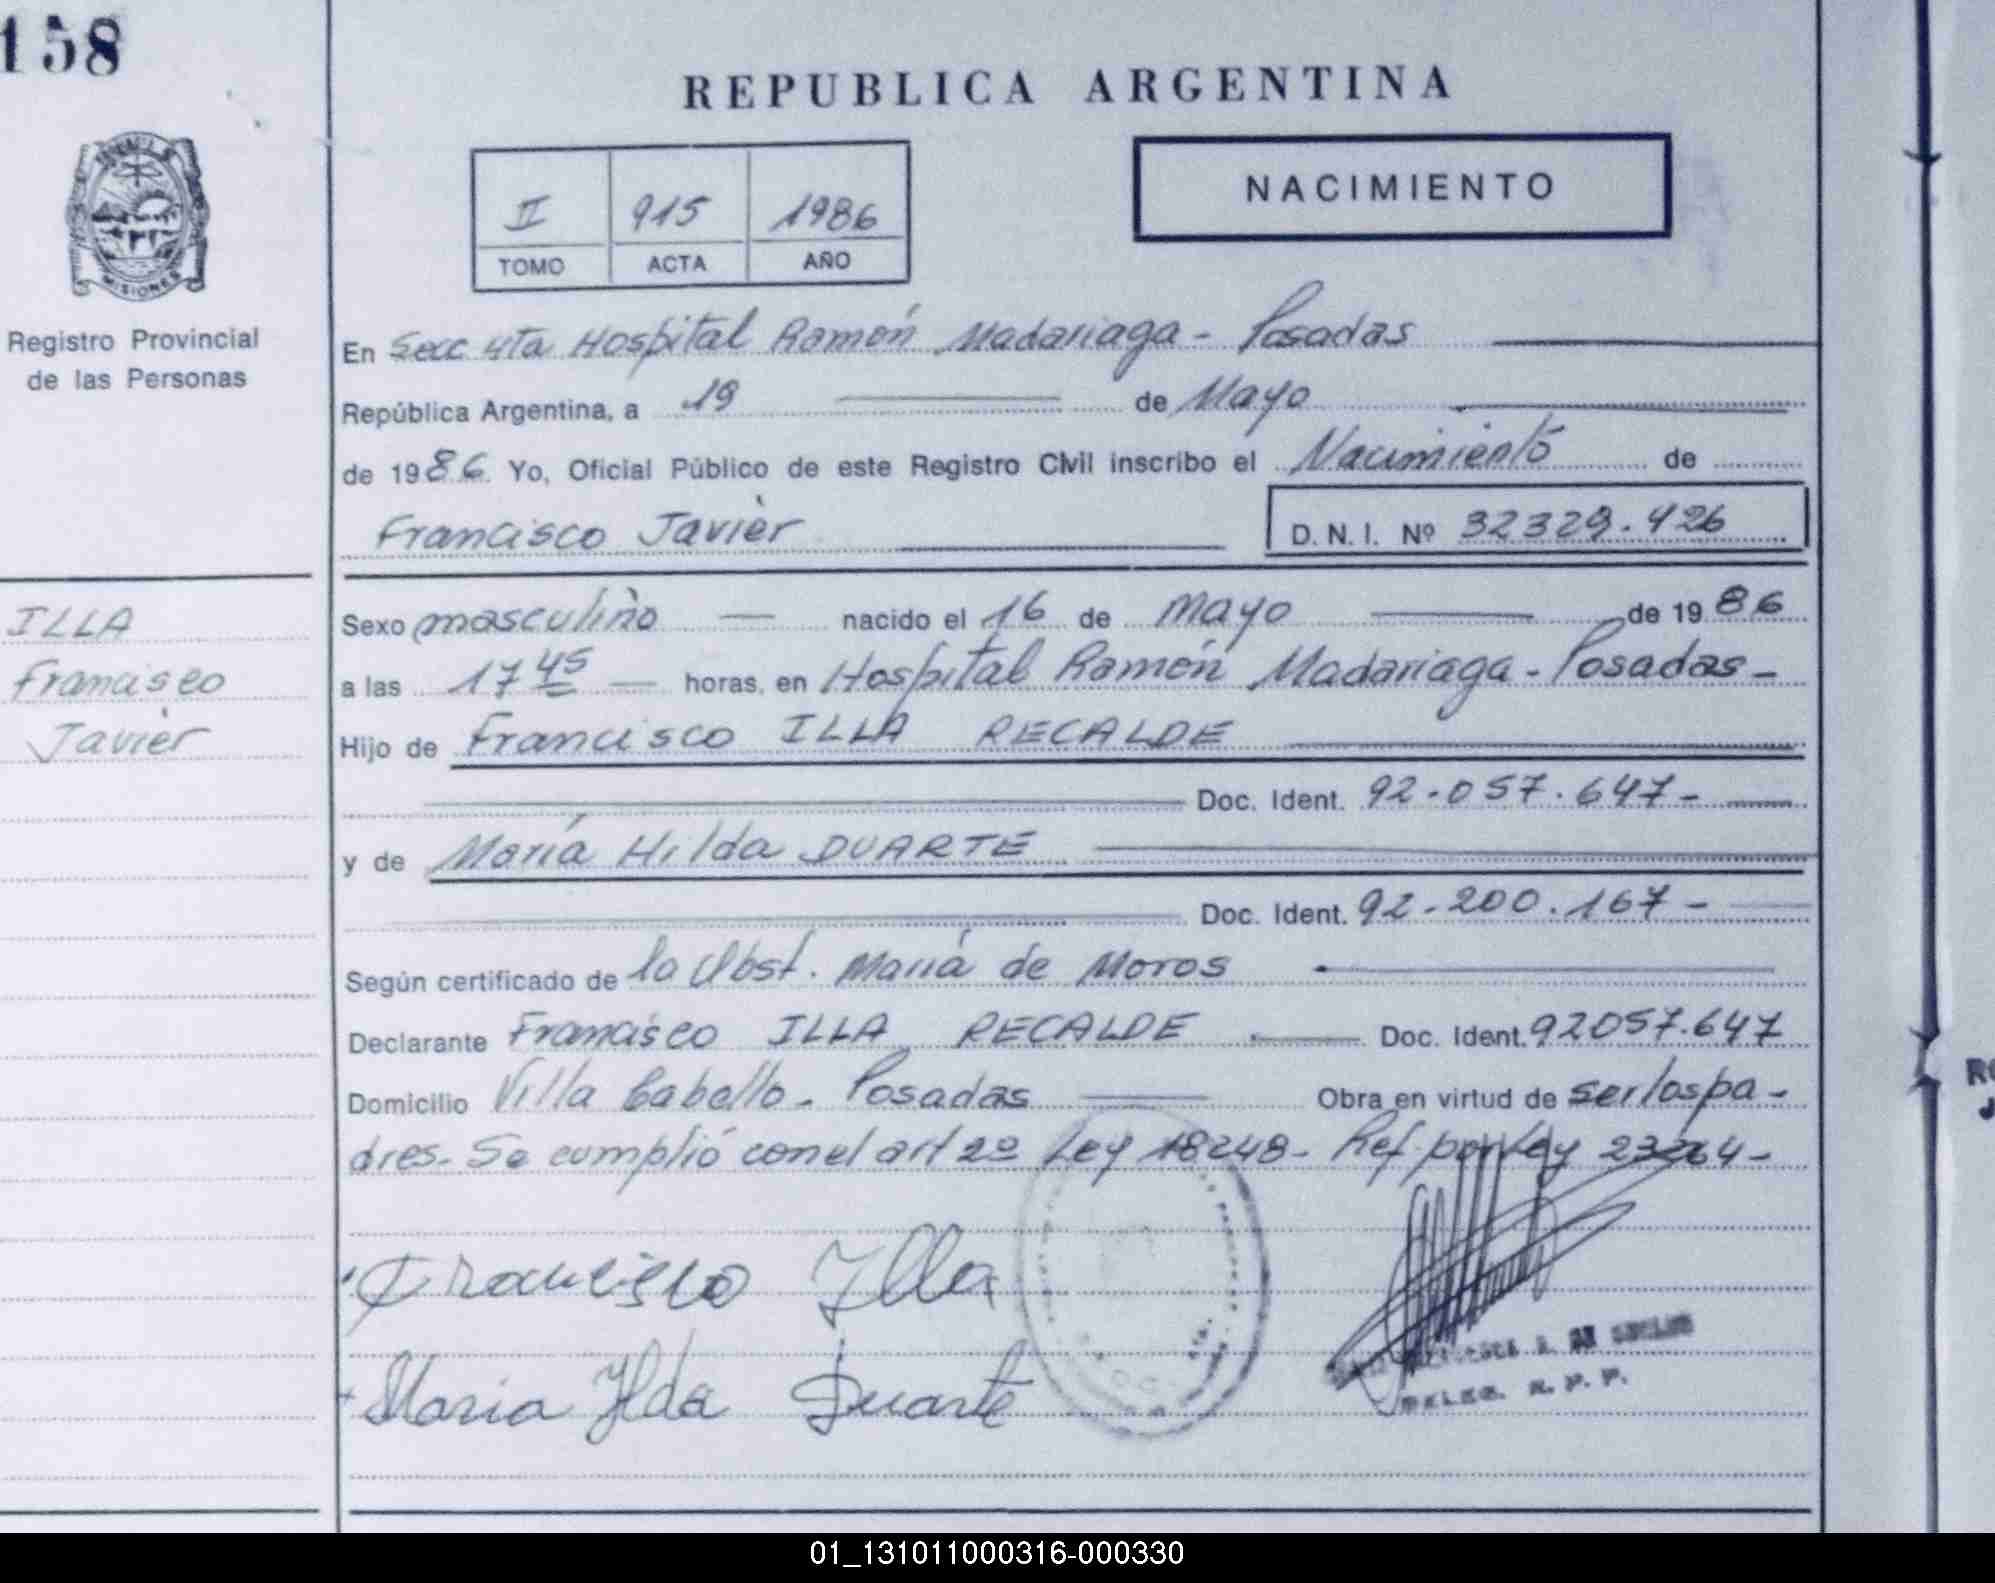 158
REPUBLICA ARGENTINA
II 915 1986
TOMO ACTA AÑO
NACIMIENTO
MISIONES
Registro Provincial
de las Personas
En Secc 4ta Hospital Ramón Madariaga - Posadas
República Argentina, a 19 de Mayo
de 1986. Yo, Oficial Público de este Registro Civil inscribo el Nacimiento de
Francisco Javier D. N. I. Nº 32329.426
ILLA
Francisco
Javier
Sexo masculino nacido el 16 de mayo de 1986
a las 17 45 horas, en Hospital Ramón Madariaga - Posadas -
Hijo de Francisco ILLA RECALDE
Doc. Ident. 92.057.647-
y de María Hilda DUARTE
Doc. Ident. 92-200.167-
Según certificado de la Obst. María de Moros
Declarante Francisco ILLA RECALDE Doc. Ident. 92057.647
Domicilio Villa Cabello - Posadas Obra en virtud de ser los pa-
dres. Se cumplió con el art 2º Ley 18248- Ref. por Ley
Francisco Illa
Maria Ilda Duarte
DELEG. R. P. P.
01_131011000316-000330